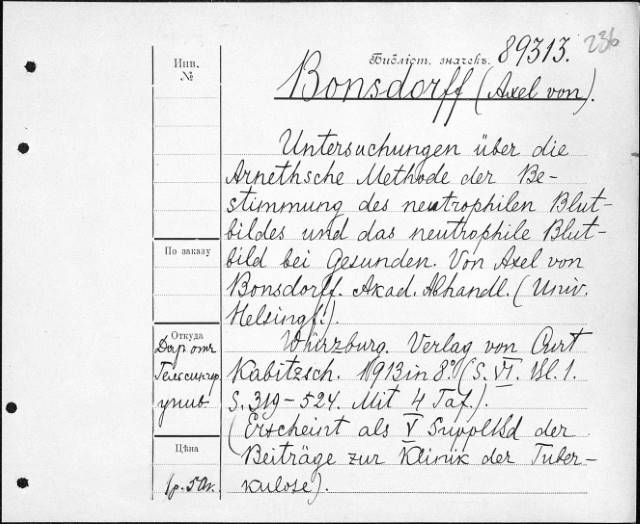 236
Библіот. значекъ. 89313.
Инв.
№
Bonsdorff (Axel von).
Untersuchungen über die
Arnethsche Methode der Be-
stimmung des neutrophilen Blut-
bildes und das neutrophile Blut-
bild bei Gesunden. Von Axel von
Bonsdorff. Akad. Abhandl. (Univ.
Helsingf.).
Würzburg. Verlag von Curt
Kabitzsch. 1913 in 8º (S. VI. Bl. 1.
S. 319-524. Mit 4 Taf.).
(Erscheint als V der
Beiträge zur Klinik der Tuber-
kulose).
По заказу
Откуда
Даръ отъ
Гельсингф.
унив.
Цѣна